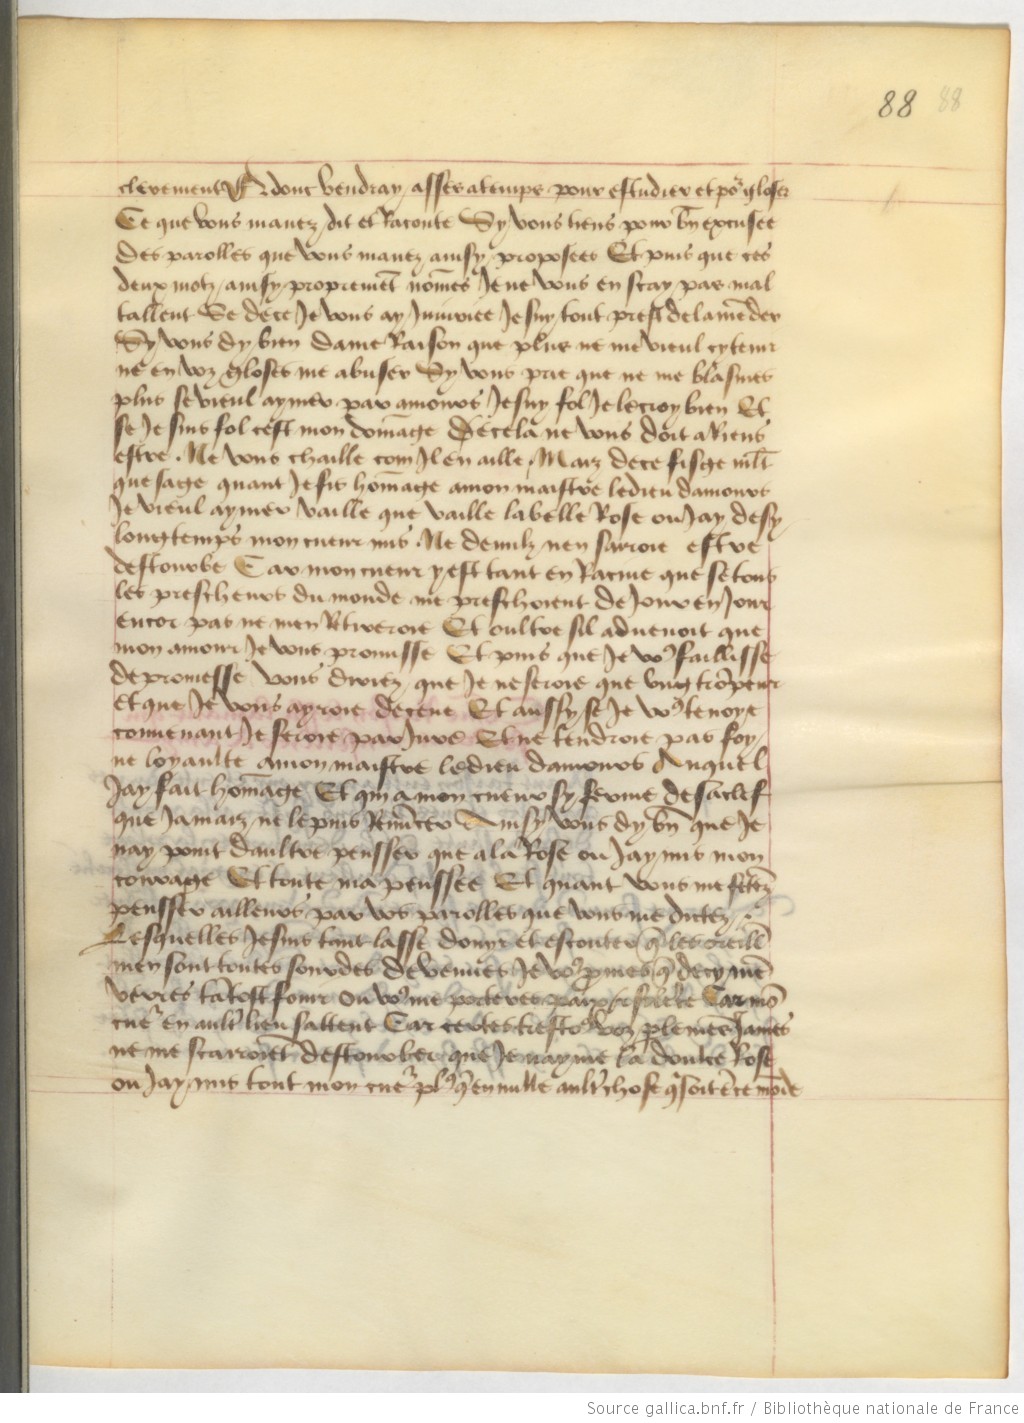 88 88
clerement Adonc vendray asses a temps pour estudier et po' gloser
Ce que vous mauez dit et Raconte Sy vous tiens pour bn excusee
Des parolles que vous mauez ainsy proposees Et puis que ces
deux motz ainsy proprement nommes Je ne vous en scay pas mal
tallent Se de ce Je vous ay Iniuriee Je suy tout prest de lamender
Sy vous dy bien dame Raison que plus ne me vieul
ne en voz gloses me abuser Sy vous prie que ne me blasmes
plus se vieul aymer par amours Je suy fol Je le croy bien Et
se Je suis fol cest mon domage De cela ne vous doit a Riens
estre . Ne vous chaille com Il en aille Maiz de ce fis ge mlt
que sage quant Je fis homage a mon maistre le dieu damours
Je vieul aymer vaille que vaille la belle Rose ou Jay desy
longtemps mon cueur mis Ne de nulz nen sarroie estre
destourbe Car mon cueur y est tant en Racine que se tous
les prescheurs du monde me preschoient de Jour en Jour
encor pas ne men Retireroie Et oultre sil aduenoit que
mon amour Je vous promisse Et puis que Je vo' faillisse
de promesse vous diriez que Je ne seroie que vng trompeur
Et que Je vous ayroie deceue Et aussy se Je vo' tenoye
conuenant Je seroie pariure Et ne tendroie pas foy
ne loyaulte a mon maistre le dieu damours Auquel
Jay fait homage Et qui a mon cueur sy ferme de sa clef
que Jamaiz ne le puis Renuncer Ainsy vous dy bn que Je
nay point daultre pensser que a la Rose ou Jay mis mon
courage Et toute ma penssee Et quant vous me feres
pensser ailleurs par vos parolles que vous me dictez
Lesquelles Je suis tant lasse douyr et escouter q les oreill
men sont toutes sourdes deuenues Je vo' promes q de cy me
verres tantost fouir ou vo' me porteres paix Car mo
cue' en ault' lieu sattent Car certes voz James
ne me scarroient destourber que Je nayme la doulce Rose
ou Jay mis tout mon cue' pl' q en nulle ault' chose q soit en ce mode
Source gallica.bnf.fr / Bibliothèque nationale de France